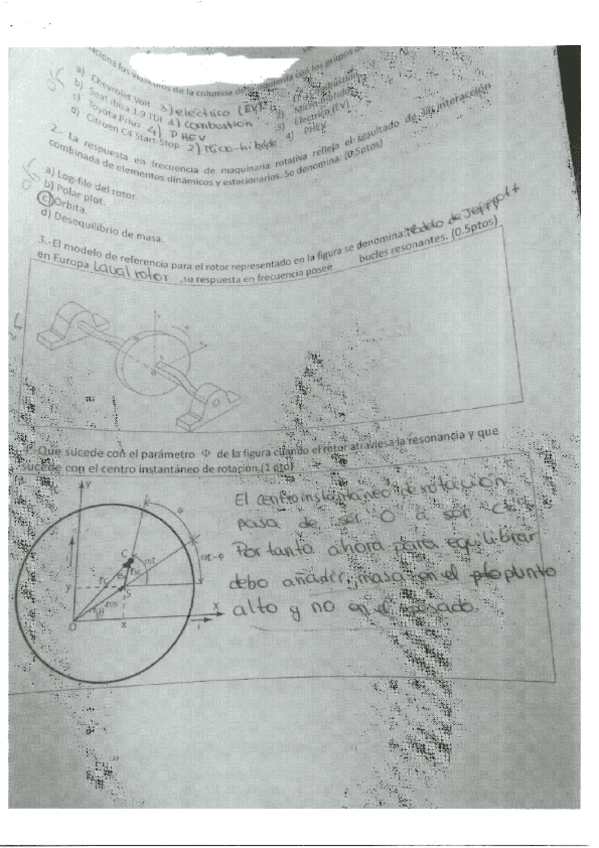 ciona los vehículos de la columna de con los grupos de
a) Chevrolet Volt 3) eléctrico (EV)
b) Seat Ibiza 1.9 TDI 1) Combustion
c) Toyota Prius 4) PHEV
d) Citroen C4 Start-Stop 2) Mico-hibrido
2) Micro
3) Electrico (EV)
4) PHEV
2.- La respuesta en frecuencia de maquinaria rotativa refleja el resultado de la interacción
combinada de elementos dinámicos y estacionarios. Se denomina: (0.5ptos)
a) Log-file del rotor.
b) Polar plot.
c) Orbita.
d) Desequilibrio de masa.
3.-El modelo de referencia para el rotor representado en la figura se denomina: Modelo de
en Europa Laval rotor ,su respuesta en frecuencia posee bucles resonantes. (0.5ptos)
Que sucede con el parámetro Φ de la figura cuando el rotor atraviesa la resonancia y que
sucede con el centro instantáneo de rotación.(1 pto)
El centro instantaneo de rotación
pasa de ser "O" a ser
Por tanto ahora para equilibrar
debo añadir masa en el punto
alto y no en el pesado.
Y
C
S
y
θ
X
O
x